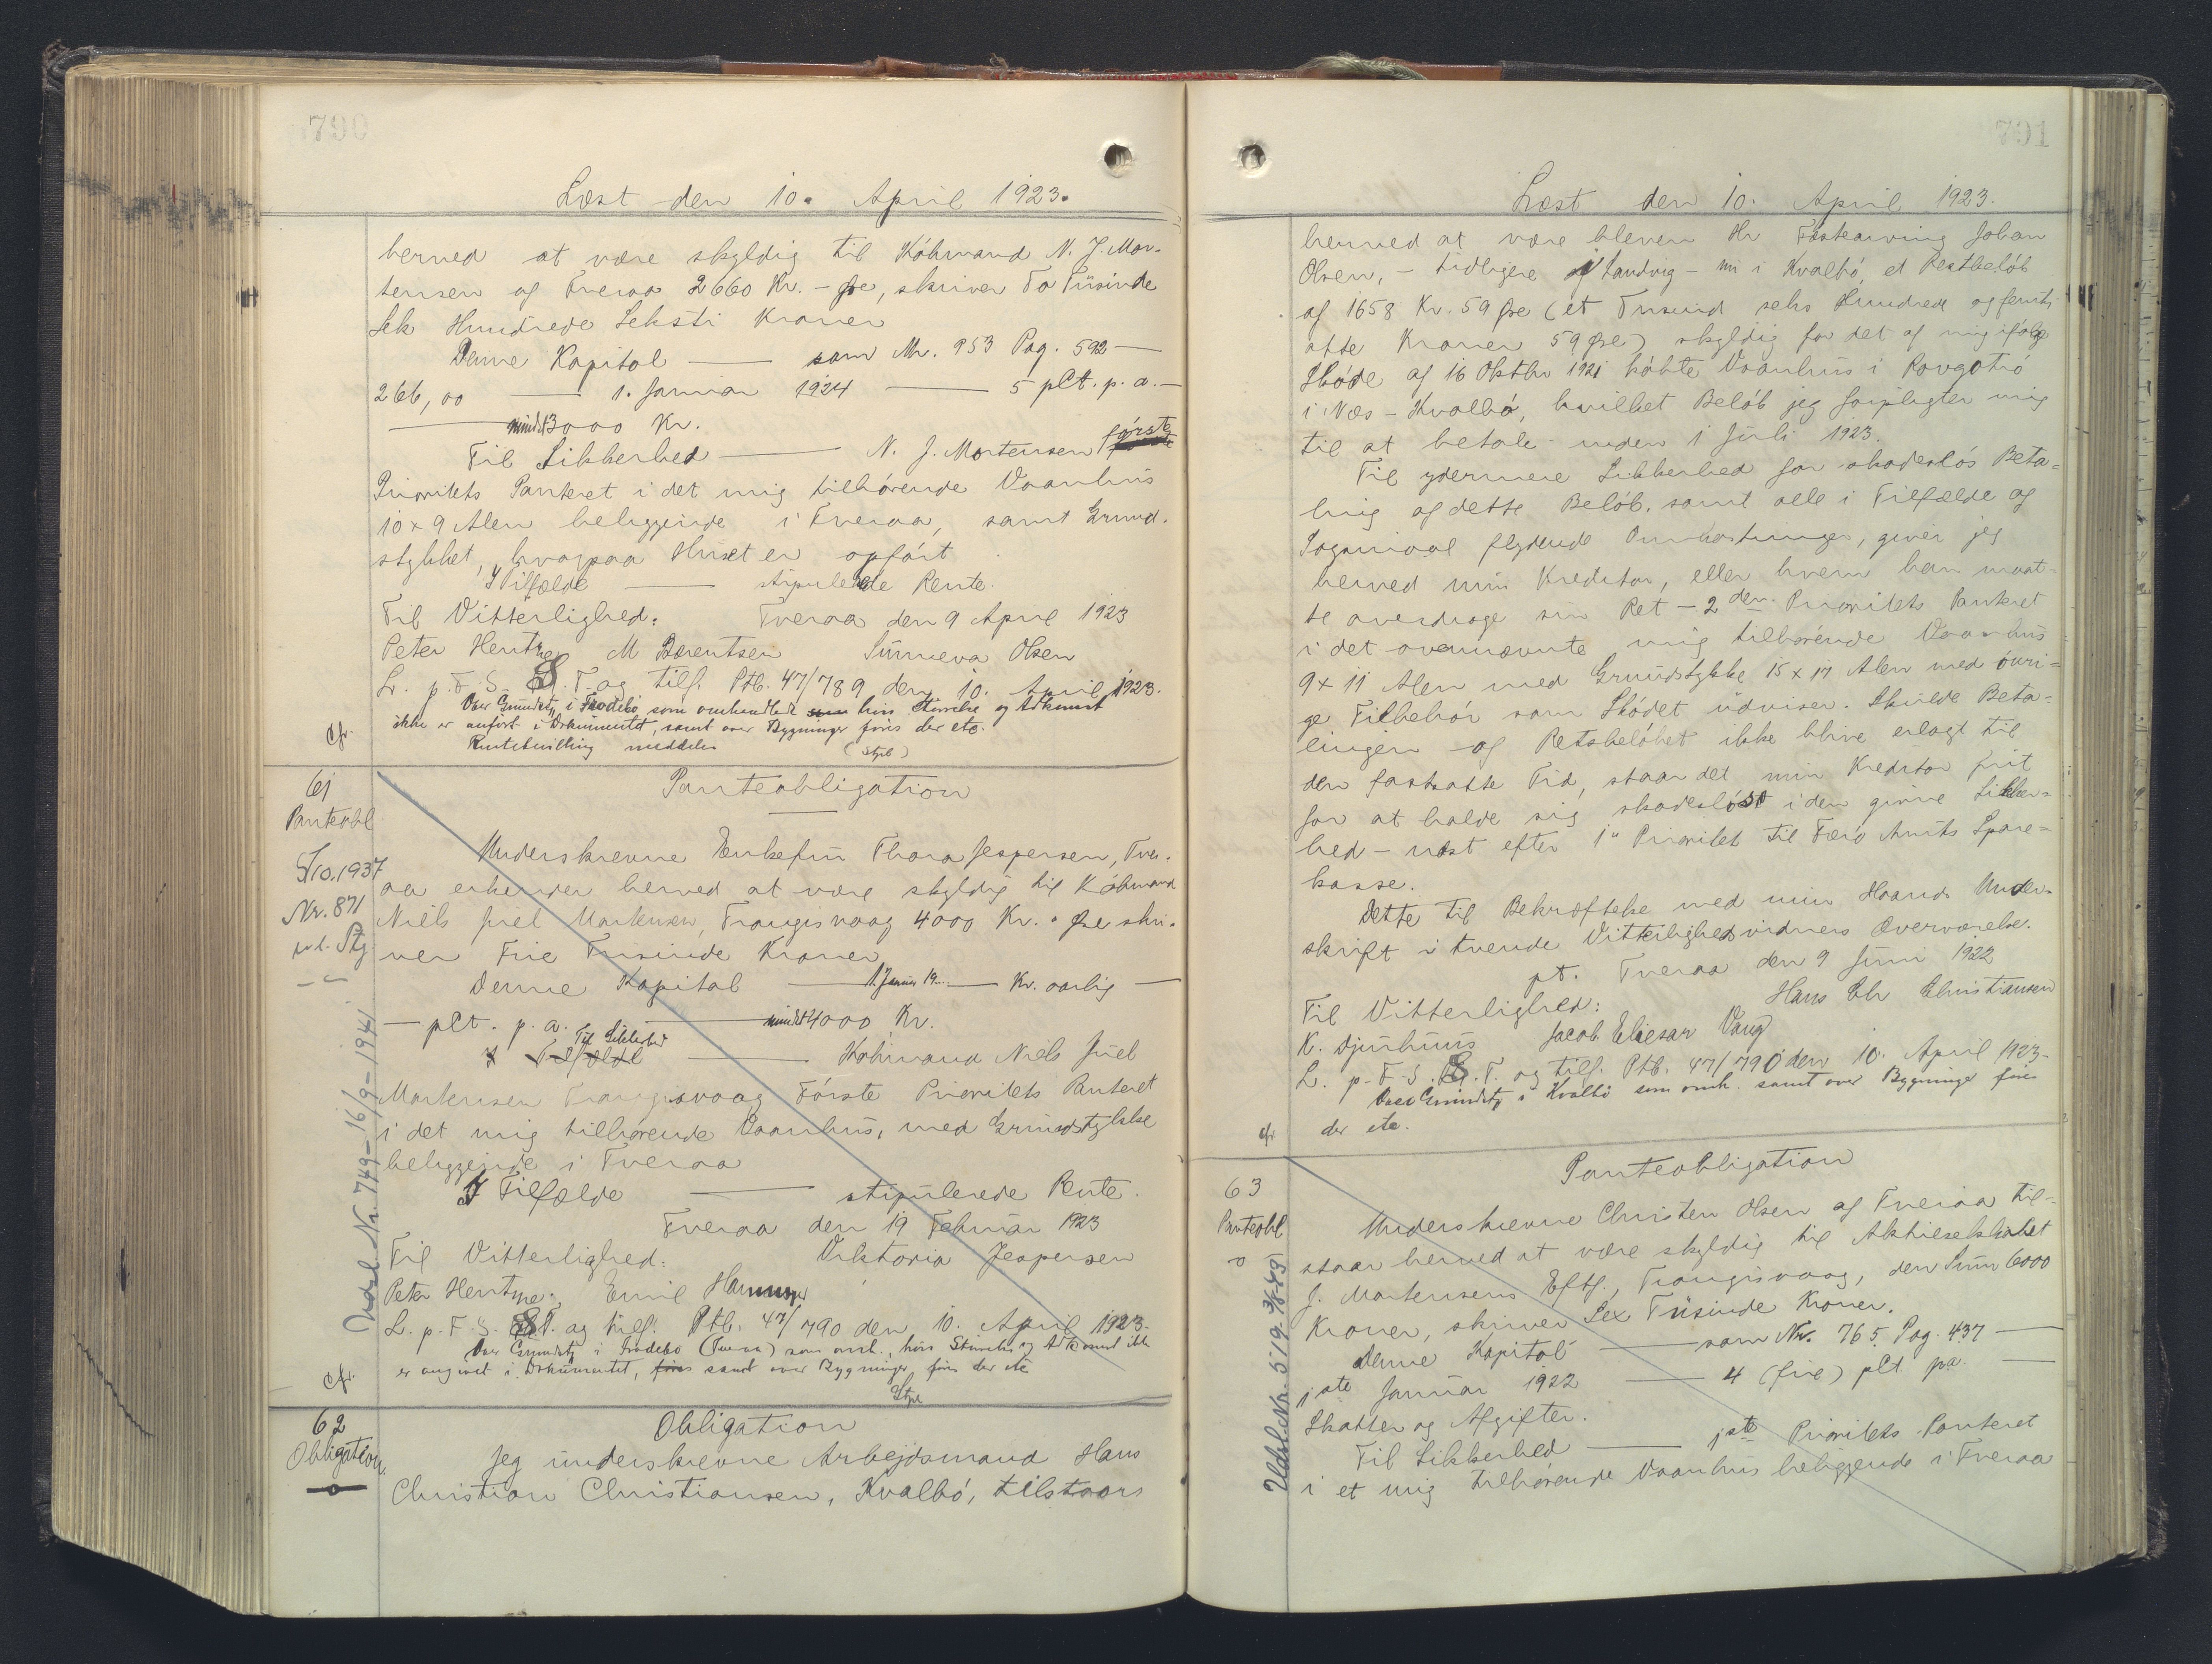 790
Læst den 10. April 1923.
herved at være skyldig til Købmand N. J. Mor-
tensen af Tveraa 2660 Kr. - Øre, skriver To Tusinde
Seks Hundrede Seksti Kroner
Denne Kapital — som Nr. 953 Pag. 592 —
266,00 — 1. Januar 1924 — 5 pCt. p. a. —
— mindst 3000 Kr.
Til Sikkerhed — N. J. Mortensen første
Prioritets Panteret i det mig tilhørende Vaanhus
10 x 9 Alen beliggende i Tveraa, samt Grund-
stykket, hvorpaa Huset er opført
I Tilfælde — stipulerede Rente.
Til Vitterlighed: Tveraa den 9 April 1923
Peter Hentze M Bærentsen Sunneva Olsen
L. p. F. S. S. T. og tilf. Ptb. 47/789 den 10. April 1923.
Over Grundst. i Frodebø, som omhandlede hvis Størrelse og Adkomst
ikke er anført i Dokumentet, samt over Bygninger føres der etc.
Cfr.
Rentebevilling meddeles
(Stpl)
61
Panteobl
5/10.1937
Nr. 871
Panteobligation
Underskrevne Enkefru Thora Jespersen, Tver-
aa erkender herved at være skyldig til Købmand
Niels Juel Mortensen, Trangisvaag 4000 Kr. " Øre skri-
ver Fire Tusinde Kroner
Denne Kapital — 1 Januar 19... — Kr. aarlig —
— pCt. p. a. — mindst 4000 Kr.
Til Sikkerhed
I Tilfælde — Købmand Niels Juel
Mortensen Trangisvaag Første Prioritets Panteret
i det mig tilhørende Vaanhus, med Grundstykke
beliggende i Tveraa
I Tilfælde — stipulerede Rente.
Tveraa den 19 Februar 1923
Til Vitterlighed: Viktoria Jespersen
Peter Hentze, Emil
L. p. F. S. S. T. og tilf. Ptb. 47/790 den 10. April 1923.
Over Grundst. i Frodebø (Tveraa) som omh., hvis Størrelse og Adkomst ikke
er angivet i Dokumentet, samt over Bygninger, føres der etc
Cfr.
Stpl
Udsl. Nr. 749 - 16/9 - 1941.
62
Obligation
Obligation
Jeg underskrevne Arbejdsmand Hans
Christian Christiansen, Kvalbø, tilstaar
791
Læst den 10. April 1923.
herved at være bleven Hr Fæstearving Johan
Olsen, - tidligere i Sandvig - nu i Kvalbø, et Restbeløb
af 1658 Kr. 59 Øre (et Tusind seks Hundrede og femti
otte Kroner 59 Øre) skyldig for det af mig ifølge
Skøde af 16 Oktbr 1921 købte Vaanhus i
i Næs - Kvalbø, hvilket Beløb jeg forpligter mig
til at betale inden 1 Juli 1923.
Til ydermere Sikkerhed for skadesløs Beta-
ling af dette Beløb, samt alle i Tilfælde af
Søgsmaal flydende Omkostninger, giver jeg
herved min Kreditor, eller hvem han maat-
te overdrage sin Ret - 2den Prioritets Panteret
i det ovennævnte mig tilhørende Vaanhus
9 x 11 Alen med Grundstykke 15 x 17 Alen med øvri-
ge Tilbehør som Skødet udviser. Skulde Beta-
lingen af Restbeløbet ikke blive erlagt til
den fastsatte Tid, staar det min Kreditor frit
for at holde sig skadesløst i den givne Sikker-
hed - næst efter 1" Prioritet til Færø Amts Spare-
kasse.
Dette til Bekræftelse med min Haands Under-
skrift i tvende Vitterlighedsvidners Overværelse.
pt. Tveraa den 9 Juni 1922
Til Vitterlighed: Hans Chr Christiansen
K. Djurhuus Jacob Eliesar Vang
L. p. F. S. S. T. og tilf. Ptb. 47/790 den 10. April 1923.
Over Grundst. i Kvalbø som omh. samt over Bygninger føres
cfr. der etc.
63
Panteobl
Panteobligation
Underskrevne Christen Olsen af Tveraa til-
staar herved at være skyldig til Aktieselskabet
J. Mortensens Eftf., Trangisvaag, den Sum 6000
Kroner, skriver Sex Tusinde Kroner.
Denne Kapital — som Nr. 765 Pag. 437 —
1ste Januar 1922 — 4 (fire) pCt pa. —
Skatter og Afgifter.
Til Sikkerhed — 1ste Prioritets Panteret
i et mig tilhørende Vaanhus beliggende i Tveraa